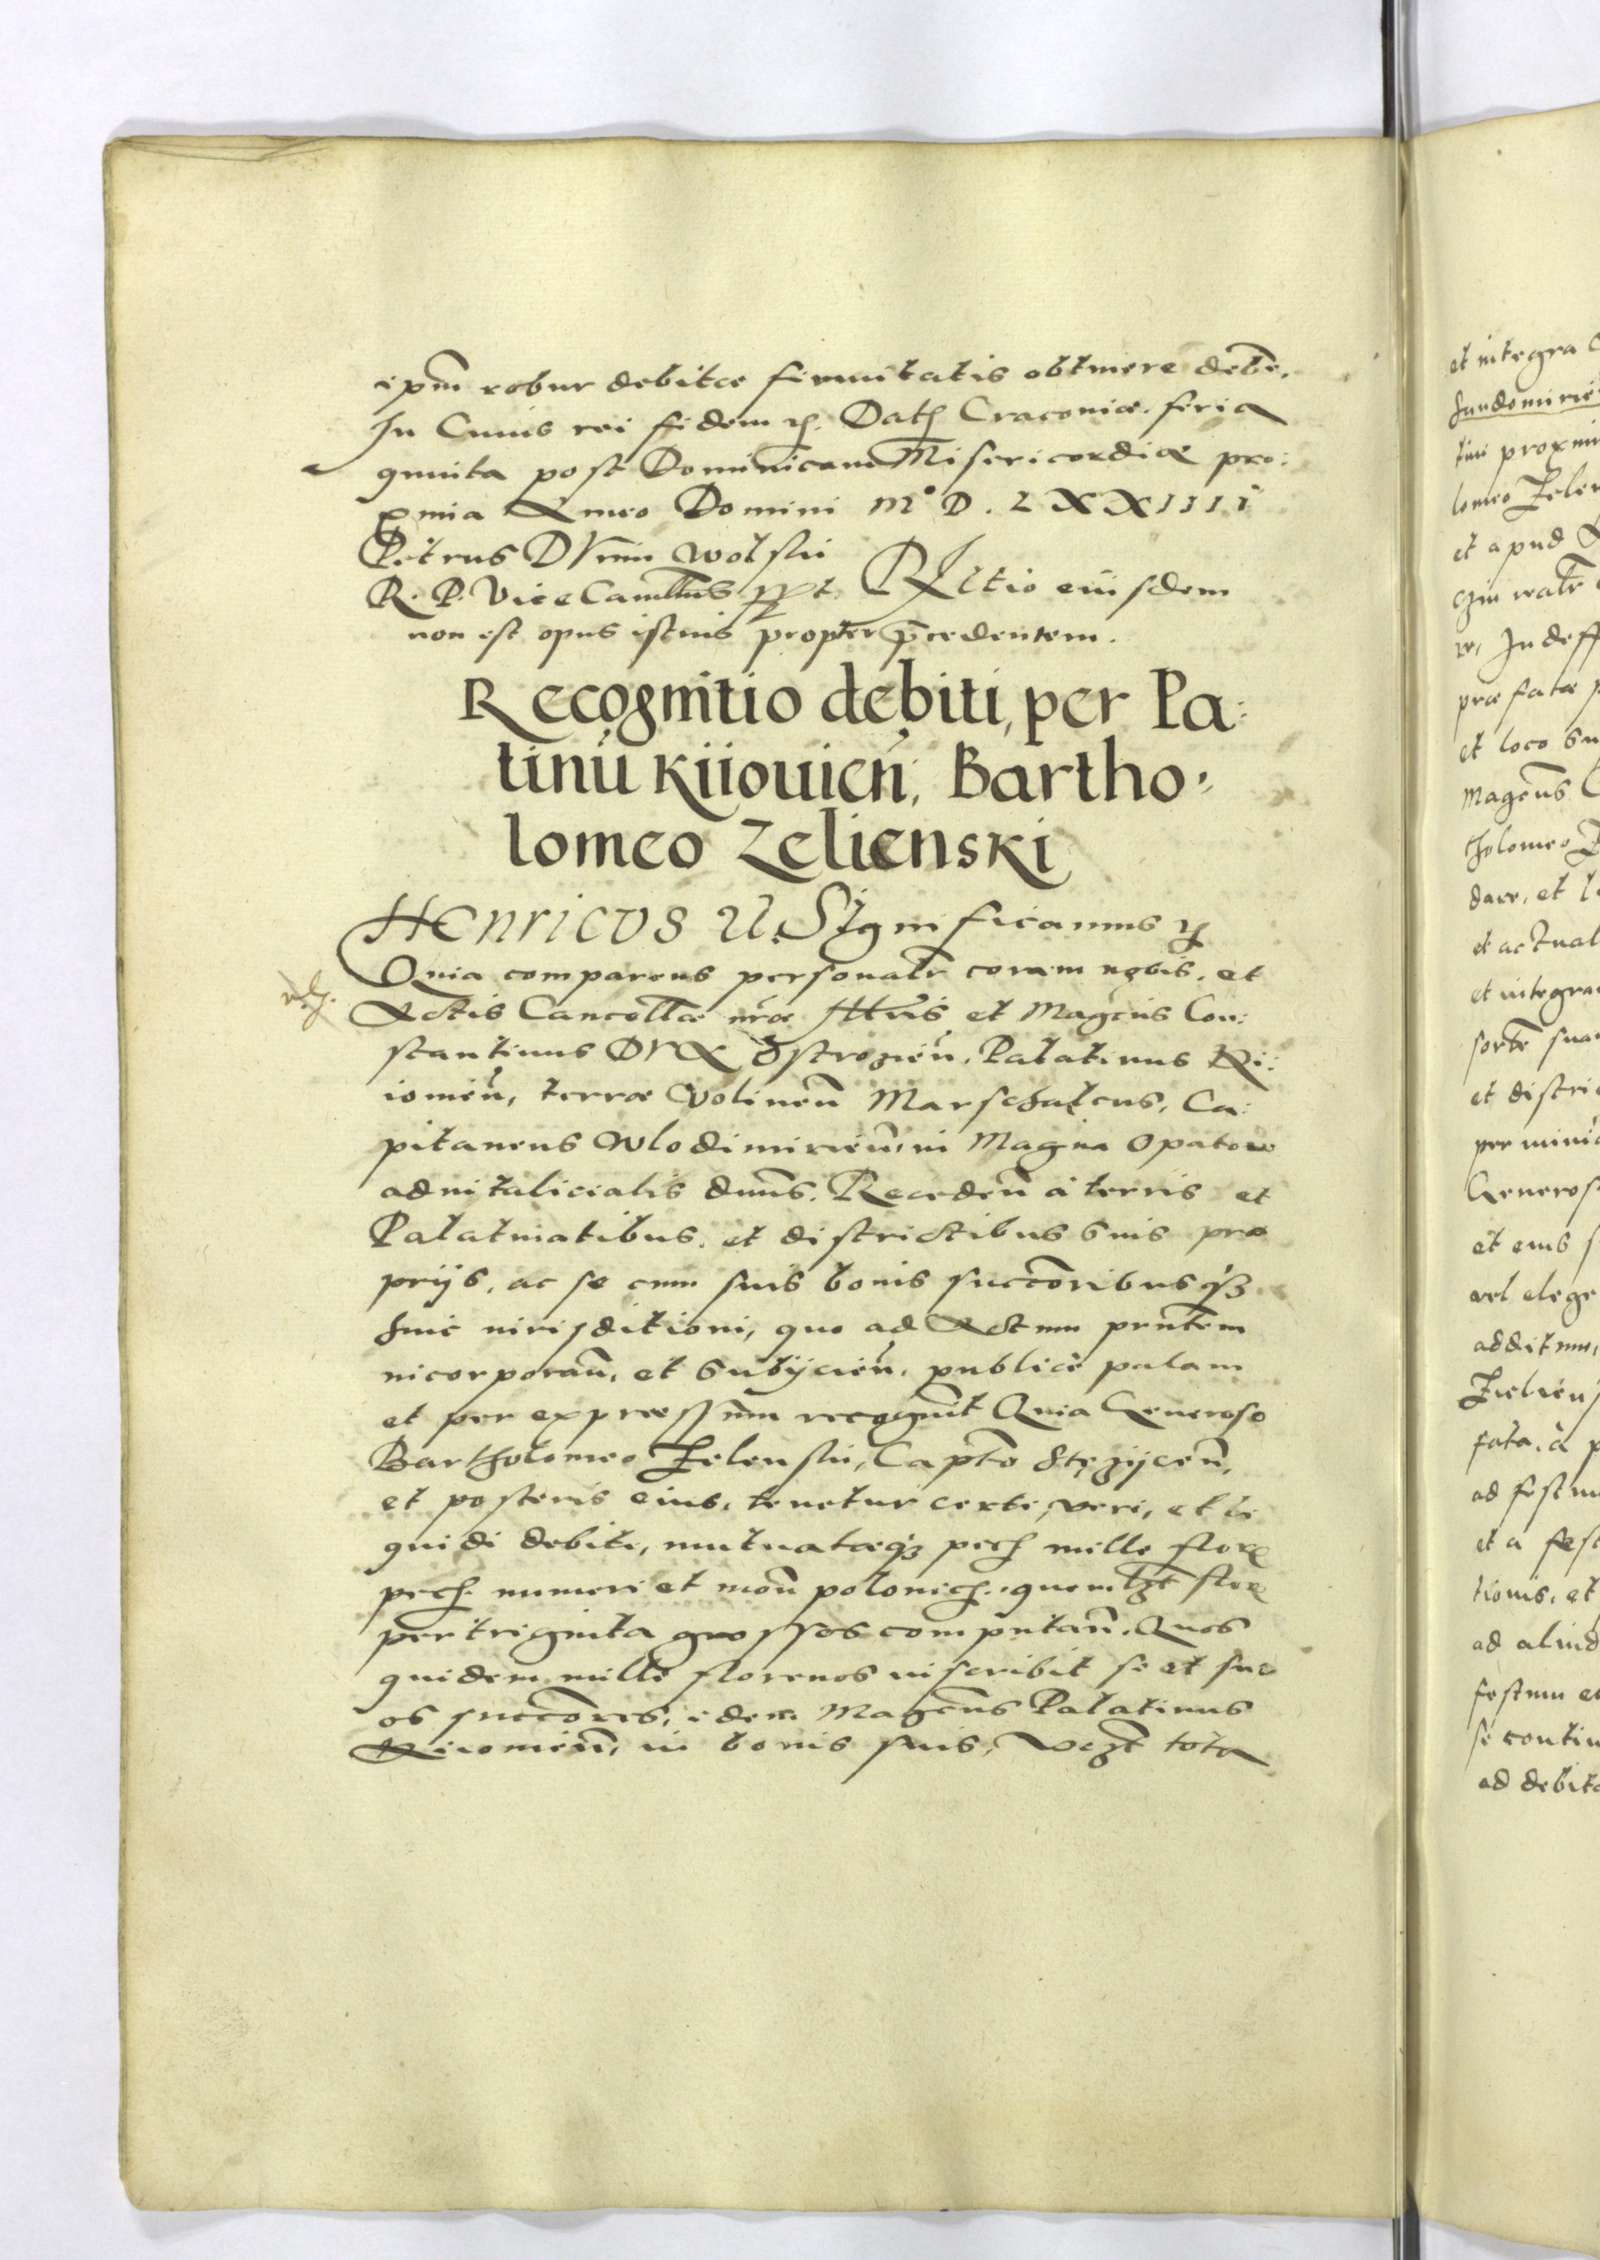 ipm̃ robur debitae firmitatis obtinere debe͂.
In Cuius rei fidem etc. Dat. Cracoviae. feria
quinta post Dominicam Misericordiae pro:
xima Anno Domini M° D. LXXIIII
Petrus Dunin Wolski
R. P. Vice Cancellrius sspt. Rltio eiusdem
non est opus istius propter p̃cedentem.
Recognitio debiti, per Pa:
tinũ Kiiouien̄, Bartho:
lomeo Zelienski
Henricus etc. Significamus etc.
Quia comparens personalr coram nobis. et
Actis Cancellae nr̃ae Illtris et Magcus Con:
stantinus Dux Ostrozien̄. Palatinus Ki:
iouien̄, terrae Volinen̄ Marschalcus, Ca:
pitaneus Wlodimirien̄ in Magna Opatow
advitalicialis dnus. Receden̄ à terris et
Palatinatibus. et districtibus suis pro
prijs, ac se cum suis bonis succoribusq3
huic iurisditioni, quo ad Actum pn̄tem
incorporan̄, et subijcien̄, publicè palam
et per expressum recognuit Quia Generoso
Bartholomeo Zelenski, Capto Stęzijcen̄,
et posteris eius, tenetur certi, veri, et li
quidi debiti, mutuataeq3 pech mille flor
pech numeri et mon̄ polonich. quemlzt flor
per triginta grossos computan̄. Quos
quidem mille florenos inscribit se et su
os succores, idem Magcus Palatinus
Kiiouien̄, in bonis suis, Vczt tota
et integra
Sandomirie
tini proxim
lomeo Zelen
et apud
re, In deff
prae fatae
et loco su
Magcus
tholomeo Z
dare, et
et actual
et integra
sorte sua
et distri
Generos
et eius s
vel elege
additum,
Zielien
fata. à p
ad festu
et a fest
tionis, et
ad aliud
festum et
se contin
ad debita